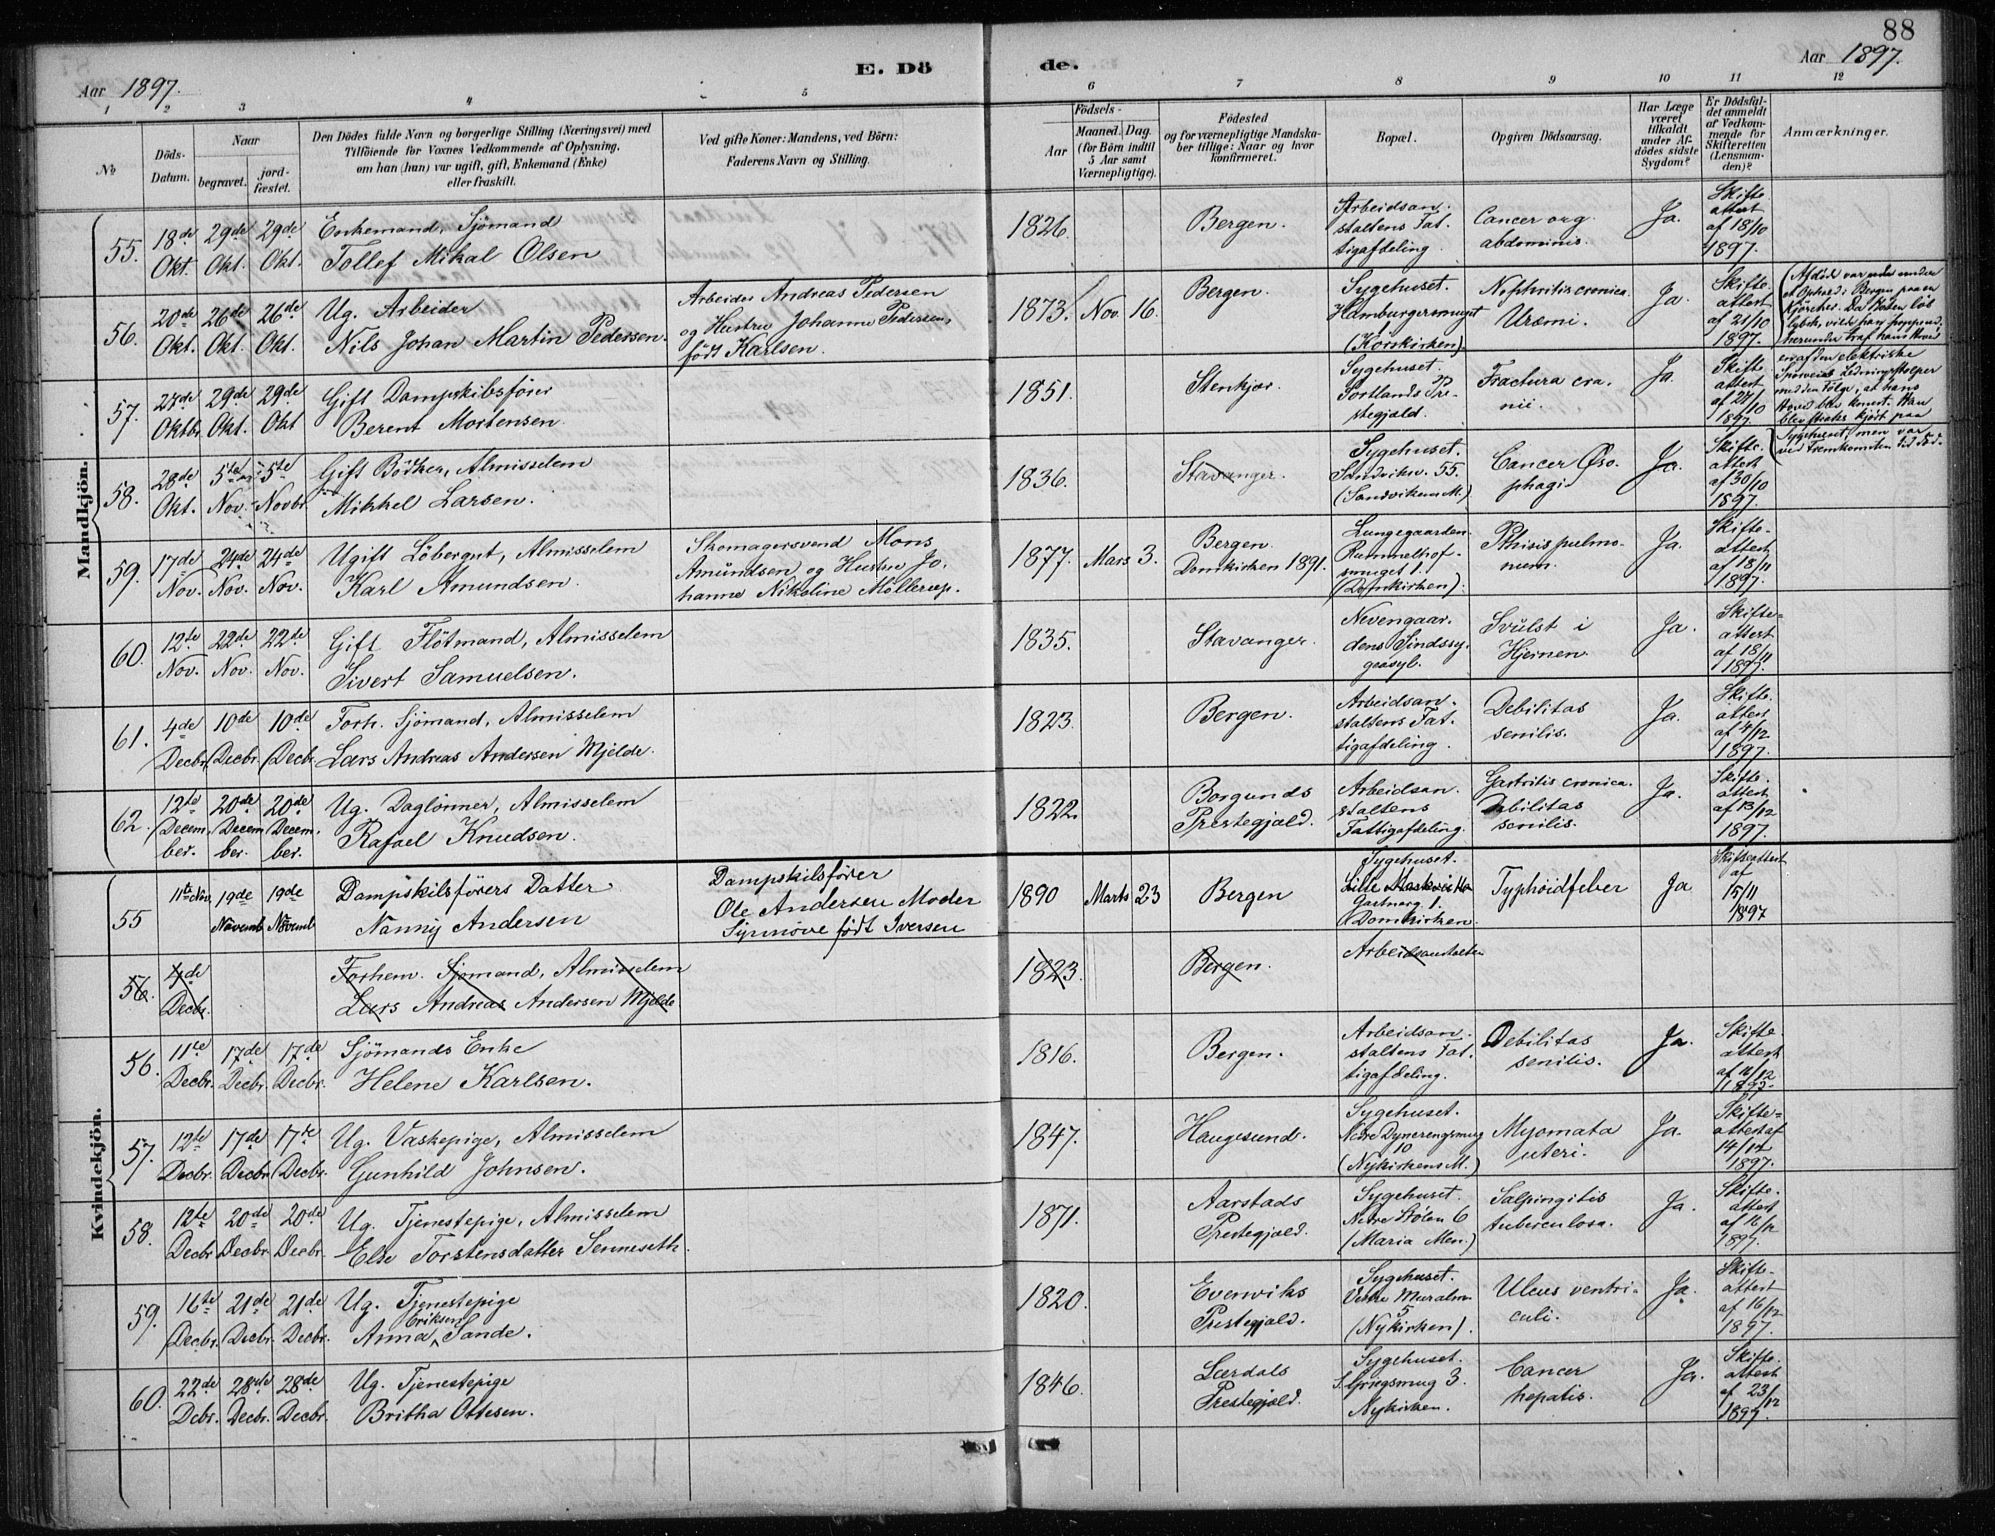 88
E. Döde.
Aar 1897.
Aar 1897.
1 2 3 4 5 6 7 8 9 10 11 12
No
Döds-Datum.
Naar
begravet.
jordfæstet.
Den Dödes fulde Navn og borgerlige Stilling (Næringsvei) med
Tilföiende for Voxnes Vedkommende af Oplysning,
om han (hun) var ugift, gift, Enkemand (Enke)
eller fraskilt.
Ved gifte Koner: Mandens, ved Börn:
Faderens Navn og Stilling.
Födsels-
Aar
Maaned. Dag.
(for Börn indtil
5 Aar samt
Værnepligtige).
Födested
og for værnepligtige Mandskaber tillige: Naar og hvor
konfirmeret.
Bopæl.
Opgiven Dödsaarsag.
Har Læge
været
tilkaldt
under Afdödes sidste
Sygdom?
Er Dödsfaldet anmeldt
af Vedkommende for
Skifteretten
(Lensmanden)?
Anmærkninger.
Mandkjön.
55. 18de Okt. 29de Okt. 29de Okt.
Enkemand, Sjömand
Tollef Mikal Olsen
1826.
Bergen.
Arbeidsanstaltens Fattigafdeling.
Cancer org. abdominis.
Ja.
Skifteattest af 18/10 1897.
56. 20de Okt. 26de Okt. 26de Okt.
Ug. Arbeider
Nils Johan Martin Pedersen.
Arbeider Andreas Pedersen
og Hustru Johanne Pedersen,
født Karlsen.
1873. Nov. 16.
Bergen.
Sygehuset.
Hamburgersmuget
(Korskirken)
Nephritis cronica.
Uræmi.
Ja.
Skifteattest af 21/10 1897.
57. Oktbr. 29de Okt. 29de Okt
Gift Dampskibsförer
Berent Mortensen.
1851.
Stenkjær.
Sygehuset.
Fractura cranii.
Ja.
Skifteattest 1897.
58. 28de Okt. 5te Nov. 5te Novbr.
Gift Bödker, Almisselem
Mikkel Larsen.
1836.
Stavanger.
Sygehuset.
Sandvikv. 55.
(Sandvikens M.)
Cancer Øsophagi.
Ja.
Skifteattest af 30/10 1897.
59. 17de Nov. 24de Nov. 24de Nov.
Ugift Löbergut, Almisselem
Karl Amundsen.
Skomagersvend Mons
Amundsen og Hustru Johanne Nikoline Möllerup.
1877. Mars 3.
Bergen.
Domkirken 1891.
Lungegaarden.
Rummelhofsmuget 1.
(Domkirken).
Phisis pulmonum.
Ja.
Skifteattest af 18/11 1897.
60. 12te Nov. 22de Nov. 22de Nov.
Gift Flötmand, Almisselem
Sivert Samuelsen.
1835.
Stavanger.
Nevengaardens Sindssygeasyl.
Svulst i Hjernen.
Ja.
Skifteattest af 18/11 1897.
61. 4de Decbr. 10de Decbr. 10de Decbr.
Forh. Sjömand, Almisselem
Lars Andreas Andersen Mjelde.
1823.
Bergen.
Arbeidsanstaltens Fattigafdeling.
Debilitas senilis.
Ja.
Skifteattest af 4/12 1897.
62. 12te December. 20de December. 20de December.
Ug. Daglönner, Almisselem
Rafael Knudsen.
1822.
Borgunds Prestegjæld.
Arbeidsanstaltens Fattigafdeling.
Gastritis cronica.
Debilitas senilis.
Ja.
Skifteattest af 13/12 1897.
Afdöde var under et Ophold i Bergen paa en Kjöretur.
Kvindekjön.
55 11te Nov. 19de Novemb 19de Novemb
Dampskibsförers Datter
Nanny Andersen
Dampskibsförer
Ole Andersen Moder
Synnöve født Iversen
1890 Marts 23
Bergen
Sygehuset.
Lille
Gartnerg. 1.
Domkirken.
Typhöidfeber
Ja
Skifteattest af 15/11 1897
56. 4de Decbr.
Forhem. Sjömand, Almisselem
Lars Andreas Andersen Mjelde
1823.
Bergen.
Arbeidsanstalten
56. 11te Decbr. 17de Decbr. 17de Decbr.
Sjömands Enke
Helene Karlsen.
1816.
Bergen.
Arbeidsanstaltens Fattigafdeling.
Debilitas senilis.
Ja.
Skifteattest af 11/12 1897.
57. 12te Decbr. 17de Decbr. 17de Decbr.
Ug. Vaskepige, Almisselem
Gunhild Johnsen.
1847.
Haugesund.
Sygehuset.
10
(Nykirkens M.)
Myomata uteri.
Ja.
Skifteattest af 14/12 1897.
58. 12te Decbr. 20de Decbr. 20de Decbr.
Ug. Tjenestepige, Almisselem
Else Torstensdatter Senneseth.
1871.
Aarstads Prestegjæld.
Sygehuset.
Nedre Stölen 6
(Maria Men.)
Salpingitis tuberculosa.
Ja.
Skifteattest af 16/12 1897.
59. 16te Decbr. 21de Decbr. 21de Decbr.
Ug. Tjenestepige
Anna Eriksen Sande.
1820.
Evenviks Prestegjæld.
Sygehuset.
5
(Nykirken).
Ulcus ventriculi.
Ja.
Skifteattest af 16/12 1897.
60. 22de Dcbr. 28de Decbr. 28de Decbr.
Ug. Tjenestepige
Britha Ottesen.
1846.
Lærdals Prestegjæld.
Sygehuset.
Nykirken.
Cancer hepatis.
Ja.
Skifteattest af 23/12 1897.